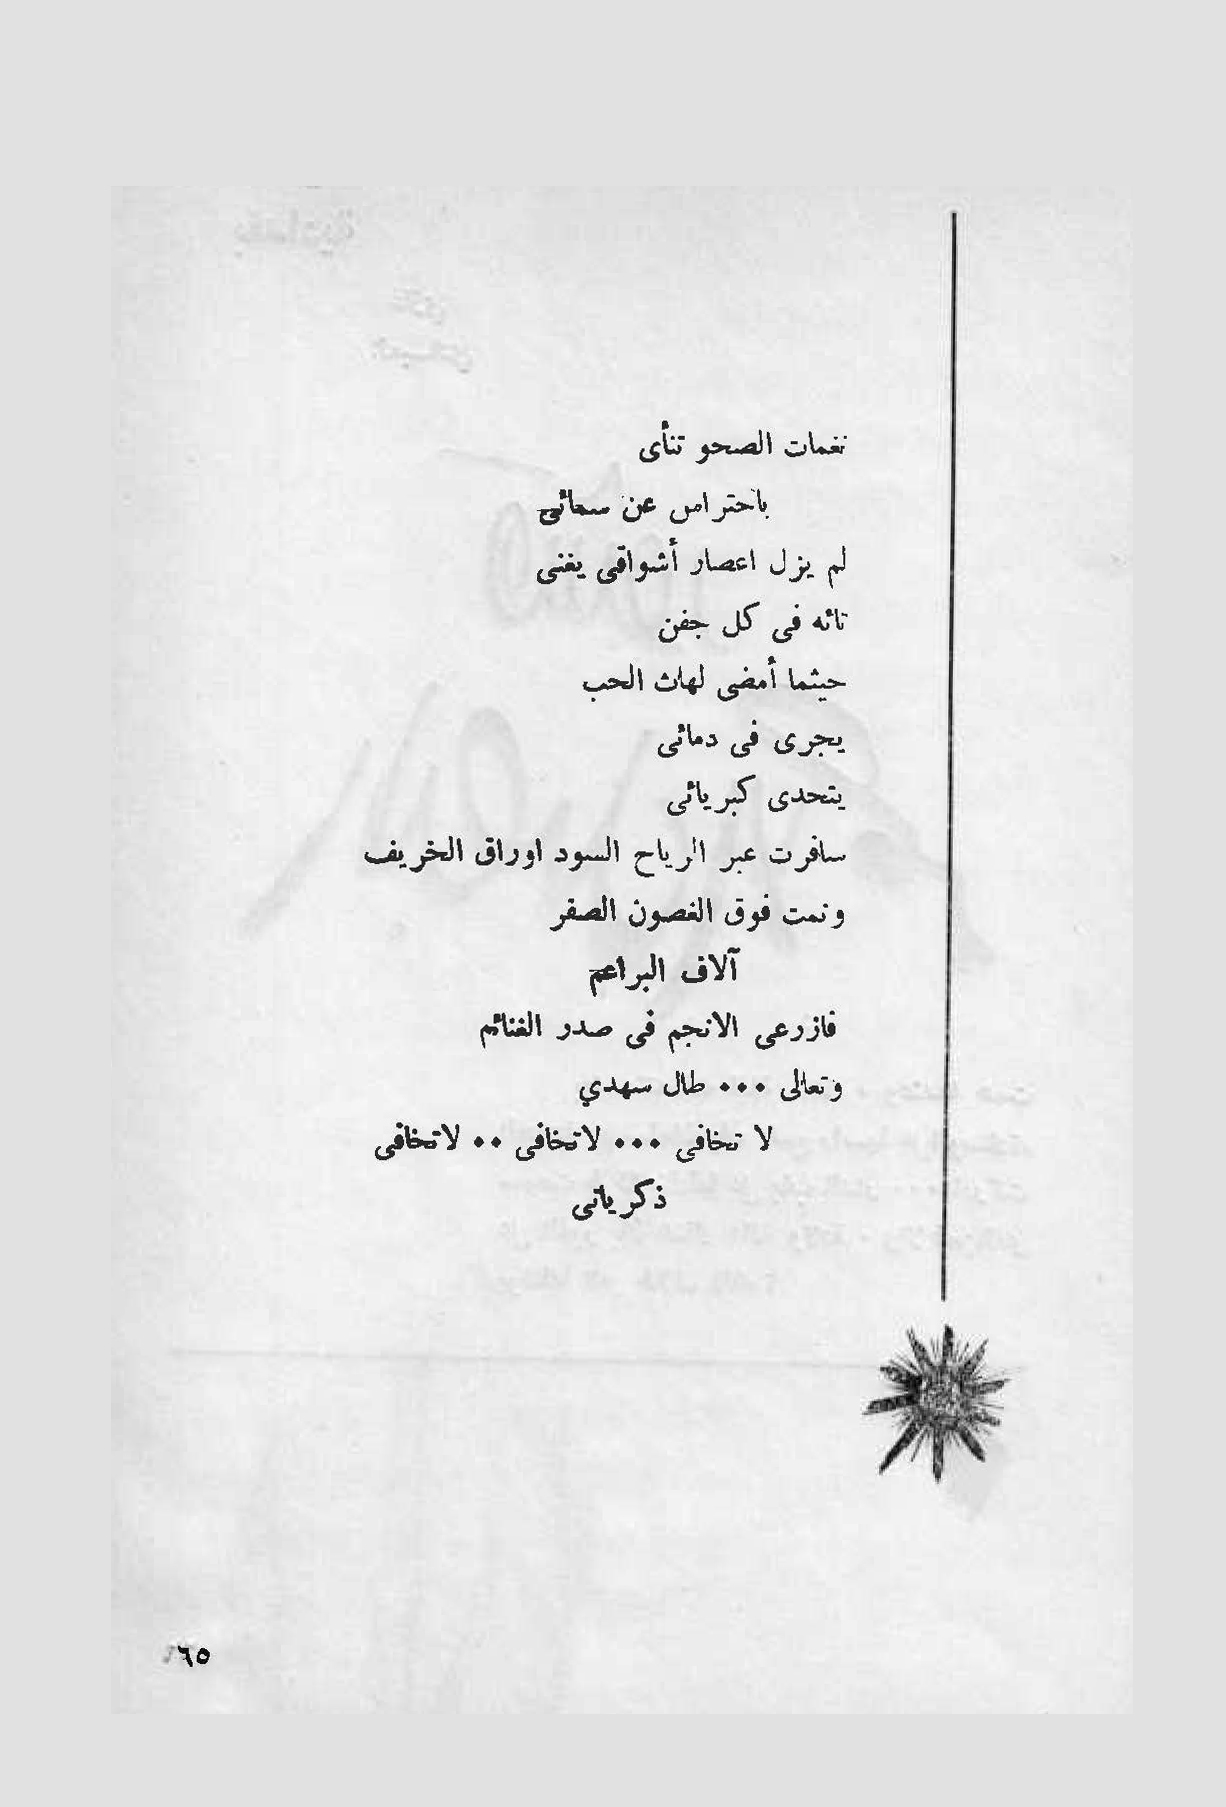 نغمات الصحو تنأى
باحتراس عن سمائي
لم يزل اعصار أشواقى يغنى
تائه فى كل جفن
حيثما أمضى لهاث الحب
يجرى فى دمائى
يتحدى كبريائى
سافرت عبر الرياح السود اوراق الخريف
ونمت فوق الغصون الصفر
آلاف البراعم
فازرعى الانجم فى صدر الغنائم
وتعالى ٠٠٠ طال سهدي
لا تخافى ٠٠٠ لاتخافى ٠٠ لاتخافى
ذكرياتى
٦٥